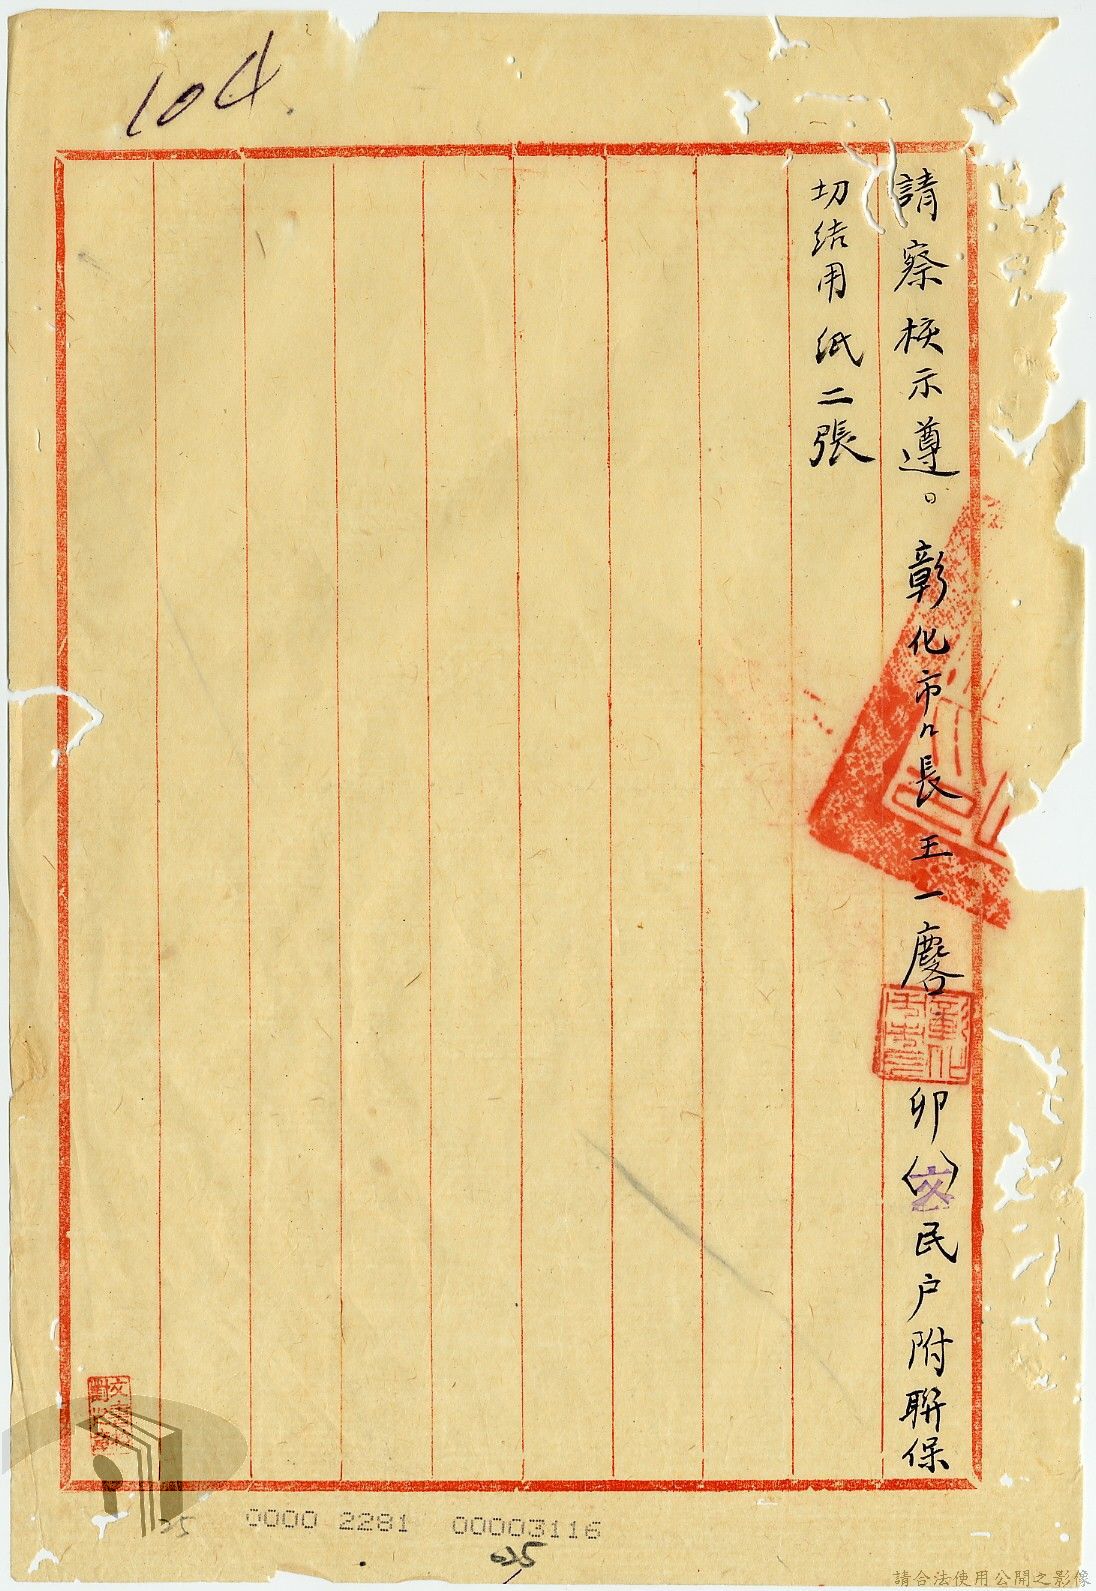 104
請察核示遵。彰化市長王一麐 卯（交）民戶附聯保
切結用紙二張
彰化
0000 2281 00003116
25
025
請合法使用公開之影像